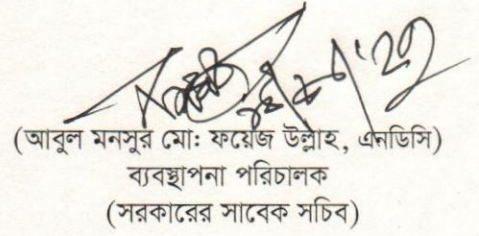 (আবুল মনসুর মোঃ ফয়েজ উল্লাহ, এনডিসি)
ব্যবস্থাপনা পরিচালক
(সরকারের সাবেক সচিব)